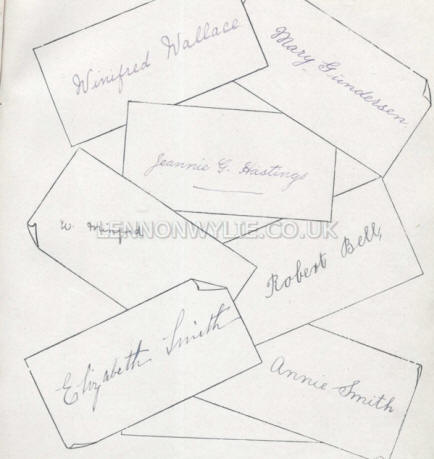 Winifred Wallace
Mary Gundersen
Jeannie G. Hastings
LENNONWYLIE.CO.UK
Robert Bell
Elizabeth Smith
Annie Smith